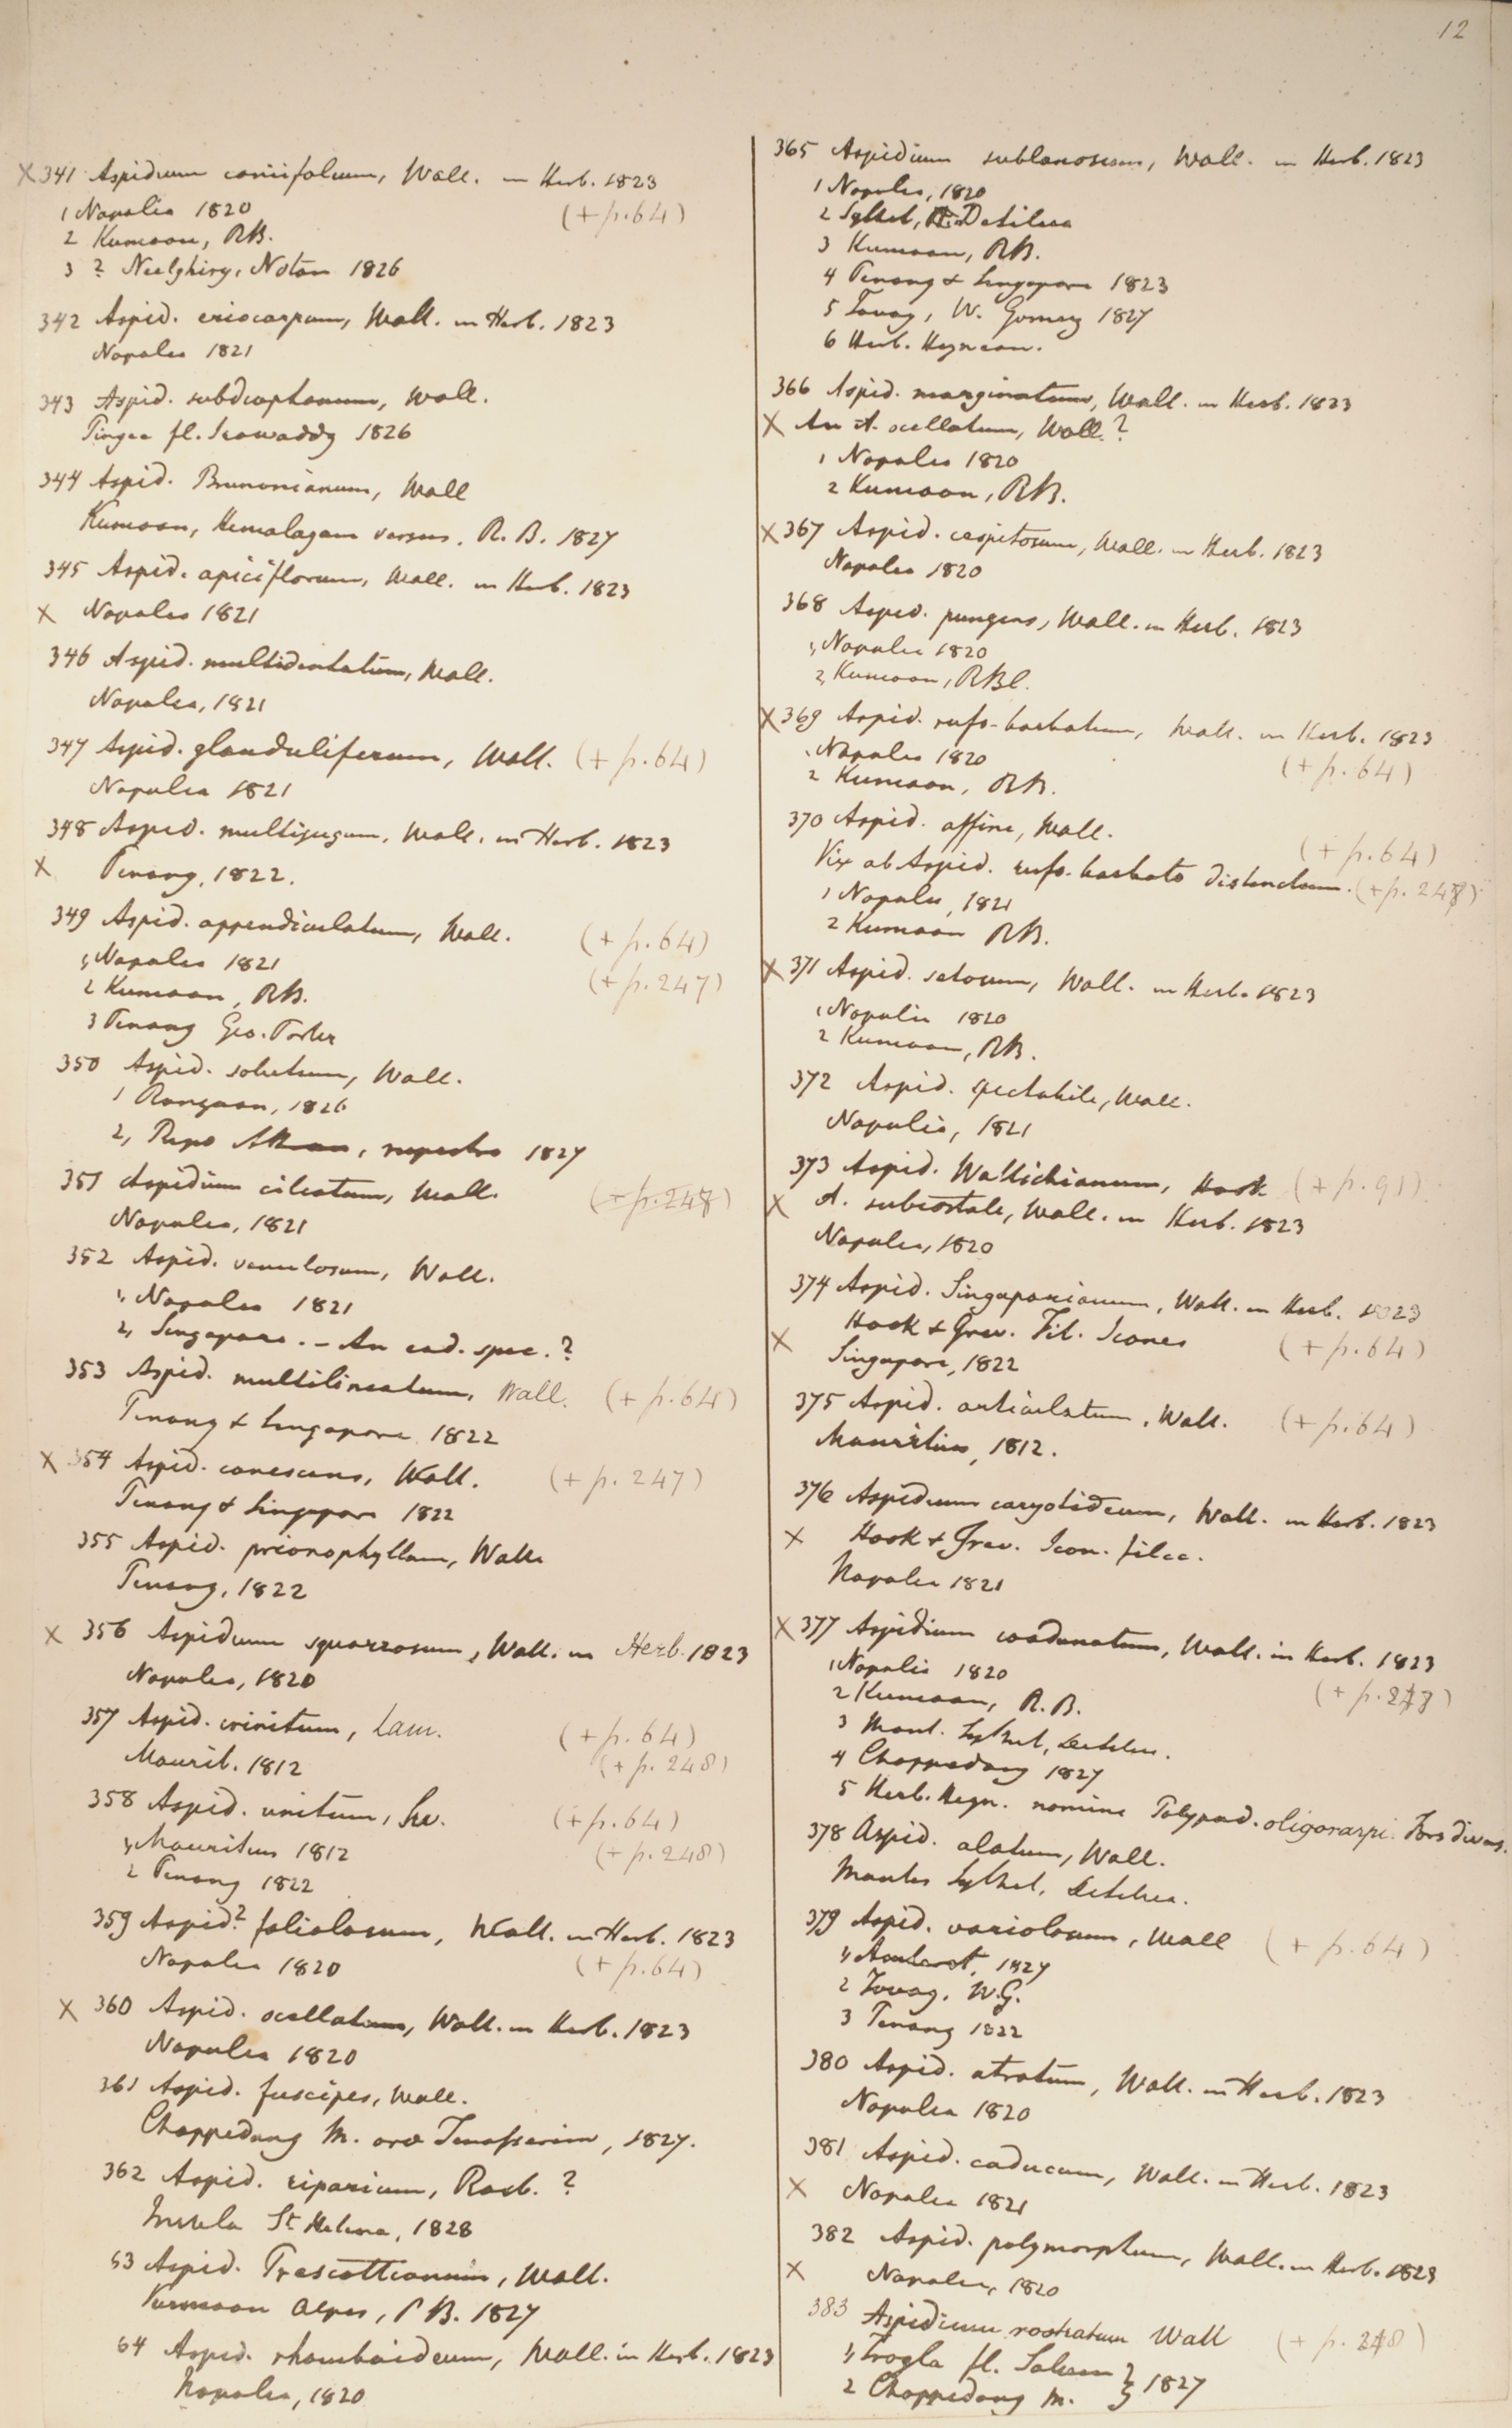 12
X 341 Aspidium coniifolium, Wall. in Herb. 1823
1 Napalia 1820 (+ p. 64)
2 Kumaon, RB.
3 ? Neelghiry, Noton 1826
342 Aspid. eriocarpum, Wall. in Herb. 1823
Napalia 1821
343 Aspid. subdiaphanum, Wall.
Pingee fl. Irawaddy 1826
344 Aspid. Brunonianum, Wall
Kumaon, Hemalayam versus, R. B. 1827
345 Aspid. apiciflorum, Wall. in Herb. 1823
X Napalia 1821
346 Aspid. multidentatum, Wall.
Napalia, 1821
347 Aspid. glanduliferum, Wall. (+ p. 64)
Napalia 1821
348 Aspid. multijugum, Wall. in Herb. 1823
X Penang, 1822.
349 Aspid. appendiculatum, Wall. (+ p. 64)
1, Napalia 1821 (+ p. 247)
2 Kumaon, RB.
3 Penang Geo. Porter
350 Aspid. solutum, Wall.
1 Rangoon, 1826
2, Ripa rupestra 1827
351 Aspidium ciliatum, Wall. (+ p. 248)
Napalia, 1821
352 Aspid. venulosum, Wall.
1, Napalia 1821
2, Singapore. - An ead. spec. ?
353 Aspid. multilineatum, Wall. (+ p. 64)
Penang & Singapore 1822
X 354 Aspid. canescens, Wall. (+ p. 247)
Penang & Singapore 1822
355 Aspid. prionophyllum, Wall.
Penang, 1822
X 356 Aspidium squarrosum, Wall. in Herb. 1823
Napalia, 1820
357 Aspid. crinitum, Lam. (+ p. 64)
Maurit. 1812 (+ p. 248)
358 Aspid. unitum, Sw. (+ p. 64)
1, Mauritius 1812 (+ p. 248)
2 Penang 1822
359 Aspid? foliolosum, Wall. in Herb. 1823
Napalia 1820 (+ p. 64)
X 360 Aspid. ocellatum, Wall. in Herb. 1823
Napalia 1820
361 Aspid. fuscipes, Wall.
Chappedang M. ora Tenasserim, 1827.
362 Aspid. riparium, Roxb. ?
Insula St Helena, 1828
63 Aspid. Prescottianum, Wall.
Kumaon Alpes, R B. 1827
64 Aspid. rhomboideum, Wall. in Herb. 1823
Napalia, 1820
365 Aspidium sublanosum, Wall. in Herb. 1823
1 Napalia, 1820
2 Sylhet, Desilva
3 Kumaon, RB.
4 Penang & Singapore 1823
5 Tavoy, W. Gomez 1827
6 Herb. Heynean.
366 Aspid. marginatum, Wall. in Herb. 1823
X An A. ocellatum, Wall. ?
1 Napalia 1820
2 Kumaon, RB.
X 367 Aspid. cespitosum, Wall. in Herb. 1823
Napalia 1820
368 Aspid. pungens, Wall. in Herb. 1823
1, Napalia 1820
2, Kumaon, RBl.
X 369 Aspid. rufo-barbatum, Wall. in Herb. 1823
1 Napalia 1820 (+ p. 64)
2 Kumaon, RB.
370 Aspid. affine, Wall. (+ p. 64)
Vix ab Aspid. rufo-barbato distinctum. (+ p. 247)
1 Napalia, 1821
2 Kumaon RB.
X 371 Aspid. setosum, Wall. in Herb. 1823
1 Napalia 1820
2 Kumaon, RB.
372 Aspid. spectabile, Wall.
Napalia, 1821
373 Aspid. Wallichianum, Hook (+ p. 91)
X A. subcostale, Wall. in Herb. 1823
Napalia, 1820
374 Aspid. Singaporianum, Wall. in Herb. 1823
X Hook & Grev. Fil. Icones (+ p. 64)
Singapore, 1822
375 Aspid. articulatum, Wall. (+ p. 64)
Mauritius, 1812.
376 Aspidium caryotideum, Wall. in Herb. 1823
X Hook & Grev. Icon. filic.
Napalia 1821
X 377 Aspidium coadunatum, Wall. in Herb. 1823
1, Napalia 1820 (+ p. 248)
2 Kumaon, R. B.
3 Mont. Sylhet, Desilva.
4 Chappedang 1827
5 Herb. Heyn. nomine Polypod. oligocarpi. Fors divers.
378 Aspid. alatum, Wall.
Montes Sylhet, Desilva.
379 Aspid. variolosum, Wall (+ p. 64)
1, Amherst, 1827
2 Tavoy, W.G.
3 Penang 1822
380 Aspid. atratum, Wall. in Herb. 1823
Napalia 1820
381 Aspid. caducum, Wall. in Herb. 1823
X Napalia 1821
382 Aspid. polymorphum, Wall. in Herb. 1823
X Napalia, 1820
383 Aspidium rostratum Wall (+ p. 248)
1, Trogla fl. Saluen } 1827
2 Chappedong M.